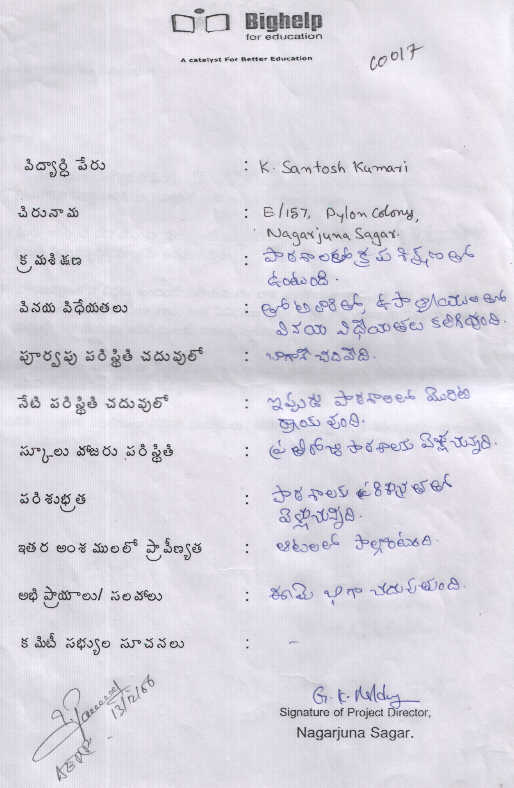 Bighelp
for education
A catalyst For Better Education
C0017
విద్యార్థి పేరు : K. Santosh Kumari
చిరునామ : E/157, Pylon Colony,
Nagarjuna Sagar.
క్రమశిక్షణ : పాఠశాలలో క్రమశిక్షణతో
ఉంటుంది.
వినయ విధేయతలు : తోటివారితో, ఉపాధ్యాయులతో
వినయ విధేయతలు కలిగివుంది.
పూర్వపు పరిస్థితి చదువులో : బాగానే చదివేది.
నేటి పరిస్థితి చదువులో : ఇప్పుడు పాఠశాలలో మొదటి
వుంది.
స్కూలు హాజరు పరిస్థితి : ప్రతిరోజు పాఠశాలకు వెళ్లుచున్నది.
పరిశుభ్రత : పాఠశాలకు పరిశుభ్రతతో
వెళ్లుచున్నది.
ఇతర అంశములలో ప్రావీణ్యత : ఆటలలో పాల్గొంటుంది.
అభిప్రాయాలు/ సలహాలు : ఈమె బాగా చదువుతుంది.
కమిటీ సభ్యుల సూచనలు : -
13/12/06
G. K.
Signature of Project Director,
Nagarjuna Sagar.